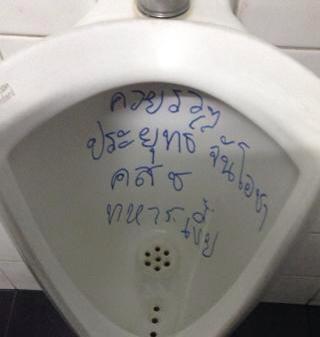 ควยรวย
ประยุทธ์ จันโอชา
คสช
ทหารเหี้ย